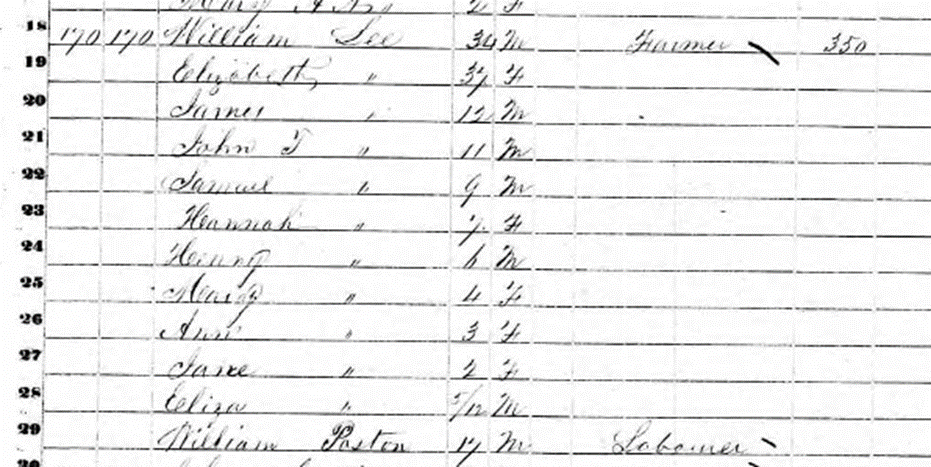 Mary A
18 170 170 William Lee 34 M Farmer 350
19 Elizabeth " 37 F
20 James " 12 M
21 John T " 11 M
22 Samuel " 9 M
23 Hannah " 7 F
24 Henry " 6 M
25 Mary " 4 F
26 Ann " 3 F
27 Jane " 2 F
28 Eliza " 5/12 M
29 William Poston 17 M Labourer